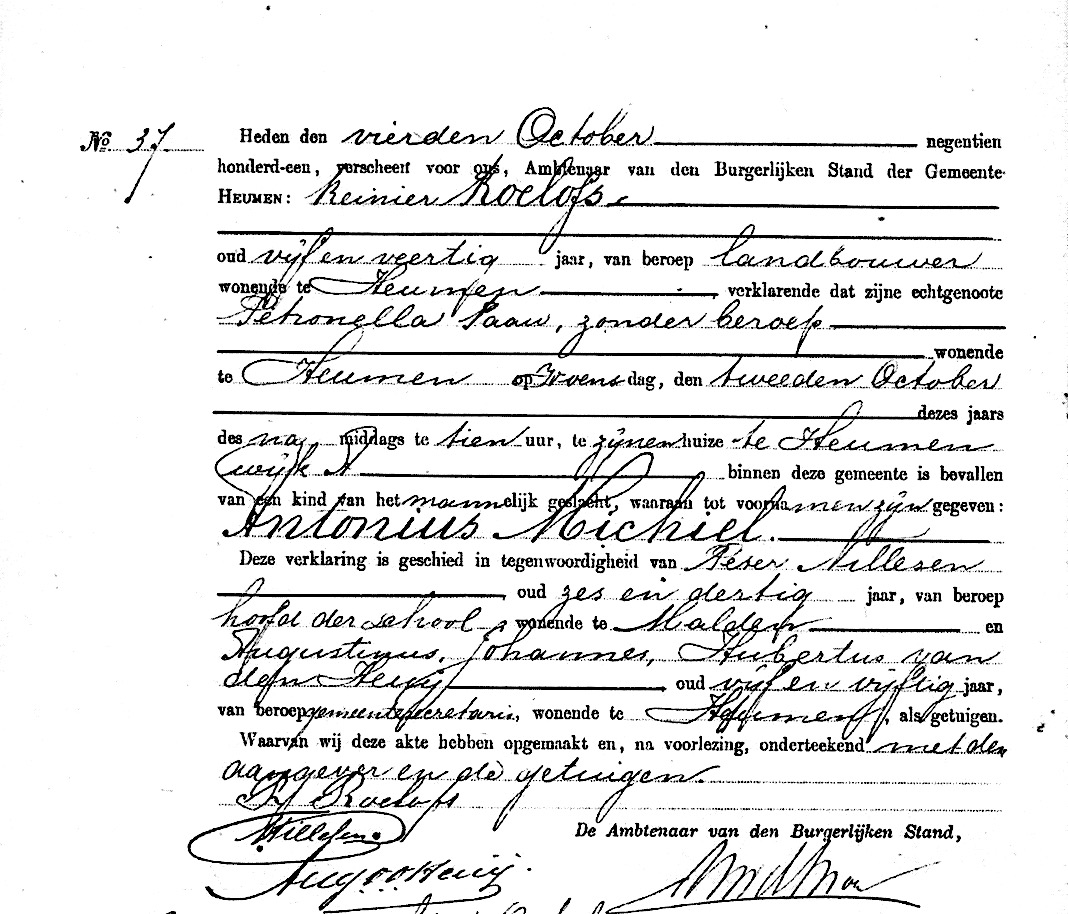 No 37
Heden den vierden October negentien
honderd-een, verscheen voor ons, Ambtenaar van den Burgerlijken Stand der Gemeente
HEUMEN: Reinier Roelofs
oud vijf en veertig jaar, van beroep landbouwer
wonende te Heumen verklarende dat zijne echtgenoote
Petronella Paau, zonder beroep
wonende
te Heumen op Woensdag, den tweeden October
dezes jaars
des na middags te tien uur, te zijnen huize te Heumen
wijk A binnen deze gemeente is bevallen
van een kind van het mannelijk geslacht, waaraan tot voornamen zijn gegeven:
Antonius Michiel.
Deze verklaring is geschied in tegenwoordigheid van Peter Nillesen
oud zes en dertig jaar, van beroep
hoofd der school, wonende te Malden en
Augustinus, Johannes, Hubertus van
den Heuij oud vijf en vijftig jaar,
van beroep gemeentesecretaris, wonende te Heumen, als getuigen.
Waarvan wij deze akte hebben opgemaakt en, na voorlezing, onderteekend met den
aangever en de getuigen.
Roelofs
Nillesen
De Ambtenaar van den Burgerlijken Stand,